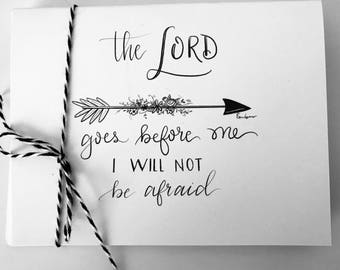 the LORD
goes before me
I WILL NOT
be afraid